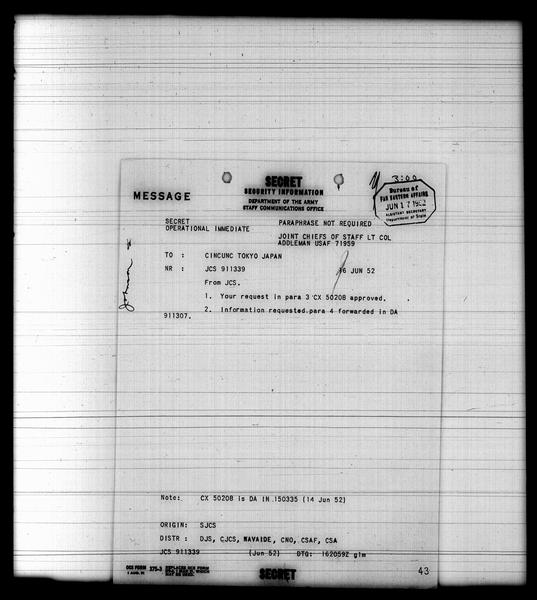 3:00
SECRET
SECURITY INFORMATION
MESSAGE
DEPARTMENT OF THE ARMY
STAFF COMMUNICATIONS OFFICE
Bureau of
FAR EASTERN AFFAIRS
JUN 17 1952
ASSISTANT SECRETARY
Department of State
SECRET PARAPHRASE NOT REQUIRED
OPERATIONAL IMMEDIATE
JOINT CHIEFS OF STAFF LT COL
ADDLEMAN USAF 71959
TO : CINCUNC TOKYO JAPAN
NR : JCS 911339 16 JUN 52
From JCS.
1. Your request in para 3 CX 50208 approved.
2. Information requested.para 4 forwarded in DA
911307.
Johnson
Note: CX 50208 is DA IN 150335 (14 Jun 52)
ORIGIN: SJCS
DISTR : DJS, CJCS, NAVAIDE, CNO, CSAF, CSA
JCS 911339 (Jun 52) DTG: 162059Z glm
OCS FORM 375-3
SECRET
43